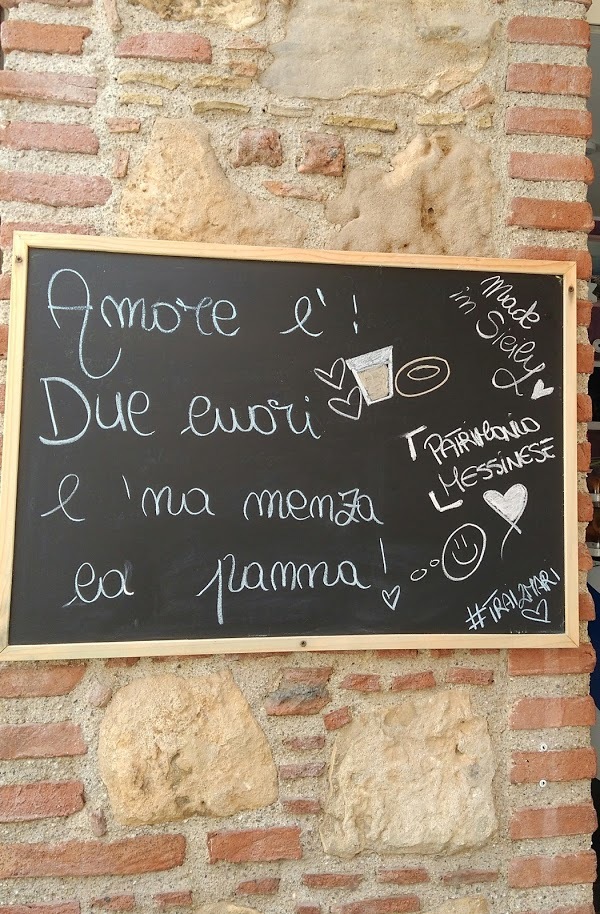 Amore è!
Due cuori
e 'na menza
ca panna!
Made
in Sicily
PATRIMONIO
MESSINESE
#TRAI2MARI